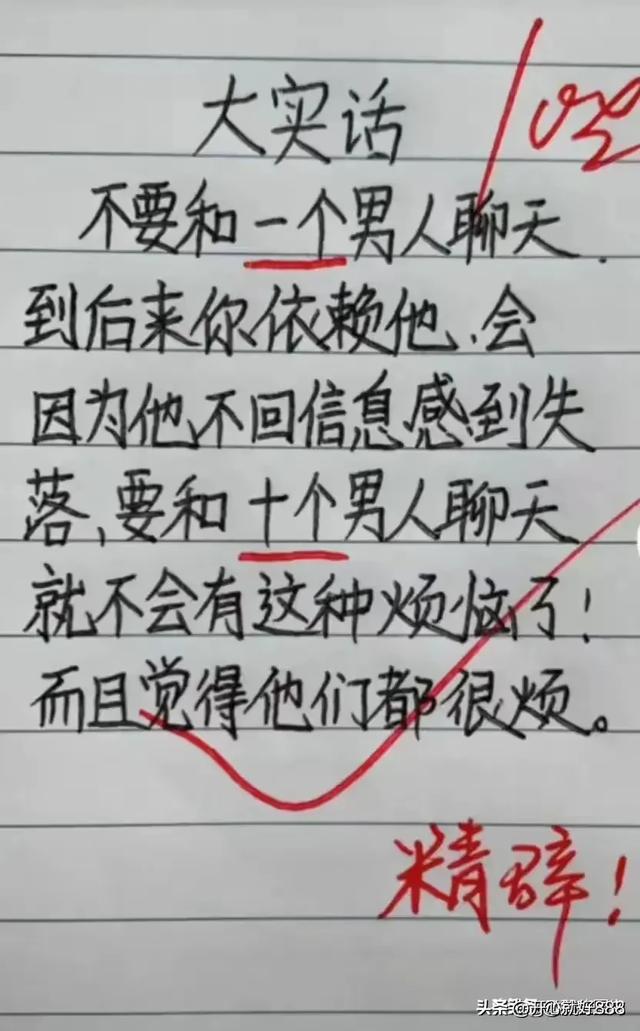 大实话
不要和一个男人聊天.
到后来你依赖他、会
因为他不回信息感到失
落、要和十个男人聊天
就不会有这种烦恼了!
而且觉得他们都很烦。
精辟!
头条 @开心就好888